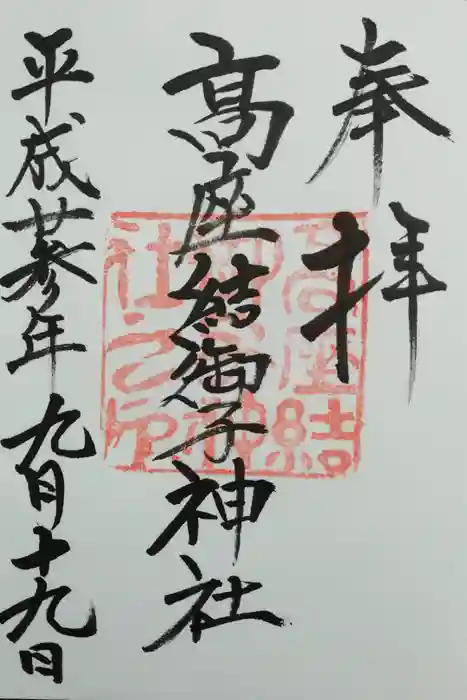 奉拝
高座結御子神社
平成廿参年九月十九日
高座結
御子神
社之印